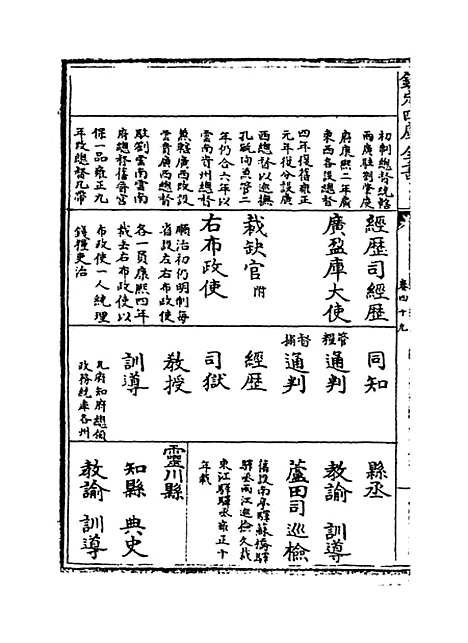 欽定四庫全書
卷四十九
初制總督統轄
兩廣駐劄肇慶
府康熙二年廣
東西各設總督
四年復舊雍正
元年復分設廣
西總督以巡撫
孔毓珣兼管二
年仍合六年以
雲南貴州總督
兼轄廣西改設
雲貴廣西總督
駐劄雲南雲南
府總督舊齋宫
保一品雍正九
年改總督凡帶
經歴司經歴
廣盈庫大使
裁缺官 附
右布政使
順治初仍明制每
省設左右布政使
各一員康熙四年
裁去右布政使以
布政使一人統理
錢糧吏治
同知
管糧通判
督捕通判
經歴
司獄
教授
訓導
凡府知府總領
政務統率各州
縣丞
教諭 訓導
蘆田司巡檢
舊設南亭驛蘇橋驛
驛丞兩江巡檢久裁
東江驛驛丞雍正十
年裁
靈川縣
知縣 典史
教諭 訓導